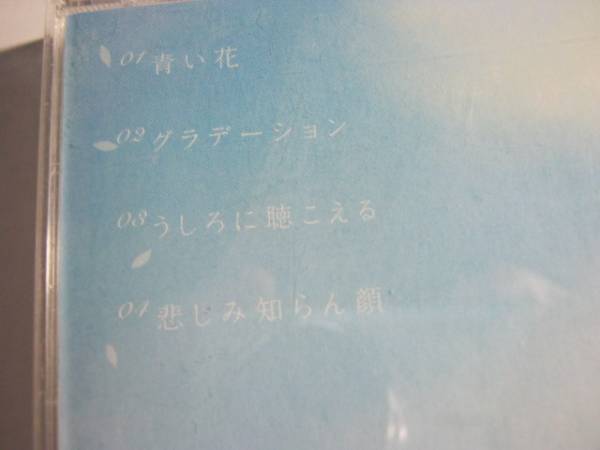 01 青い花
02 グラデーション
03 うしろに聴こえる
04 悲しみ知らん顔